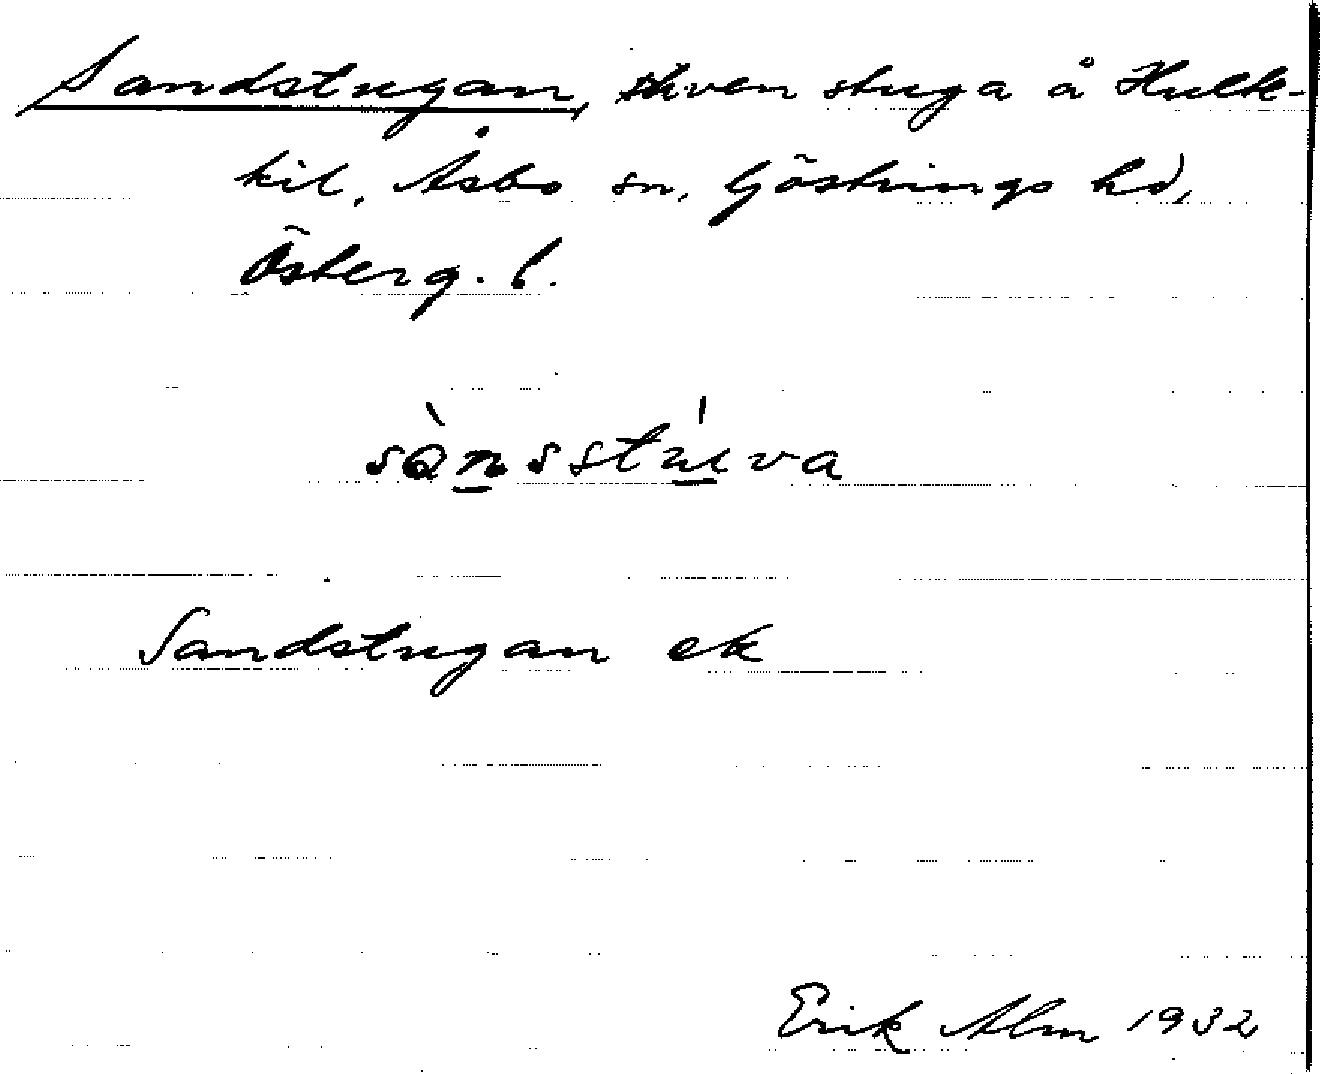 Sandstugan, even stuga å Hulk-
kil, Åsbo sn, Göstrings hd,
Österg. l.
sànsstúva
Sandstugan ek
Erik Alm 1932